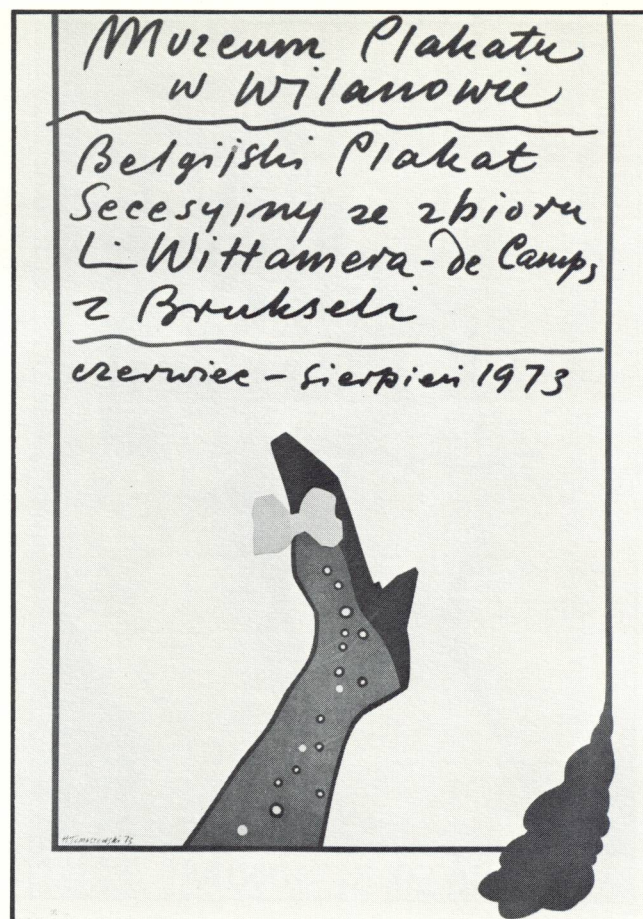 Muzeum Plakatu
w Wilanowie
Belgijski Plakat
Secesyjny ze zbioru
L. Wittamera-de Camps
z Brukseli
czerwiec - sierpień 1973
H Tomaszewski 73